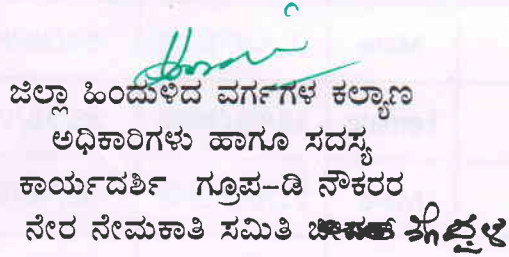 ಜಿಲ್ಲಾ ಹಿಂದುಳಿದ ವರ್ಗಗಳ ಕಲ್ಯಾಣ
ಅಧಿಕಾರಿಗಳು ಹಾಗೂ ಸದಸ್ಯ
ಕಾರ್ಯದರ್ಶಿ ಗ್ರೂಪ-ಡಿ ನೌಕರರ
ನೇರ ನೇಮಕಾತಿ ಸಮಿತಿ